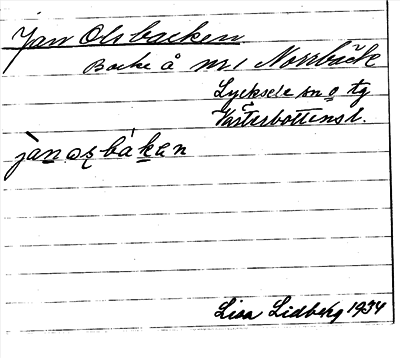 Jan Olsbacken
Backe å nr 1 Norrbäck
Lycksele sn o tg
Västerbottens l.
jànoʂbákɛn
Lisa Lidberg 1934